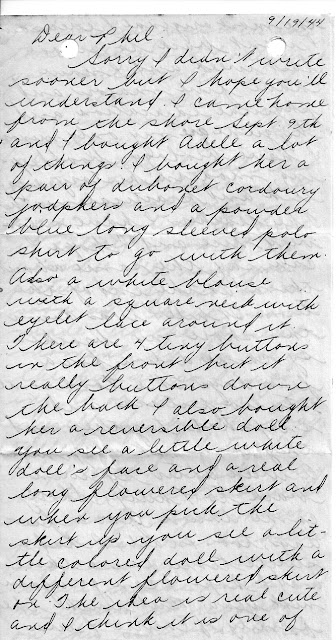 9/19/44
Dear Phil.
Sorry I didn't write
sooner but I hope you'll
understand. I came home
from the shore Sept 9th
and I bought Adele a lot
of things. I bought her a
pair of dubonet cordoury
jodphers and a powder
blue long sleeved polo
shirt to go with them.
Also a white blouse
with a square neck with
eyelet lace around it
There are 4 tiny buttons
in the front but it
really buttons down
the back I also bought
her a reversible doll
you see a little white
doll's face and a real
long flowered skirt and
when you pick the
skirt up you see a lit-
tle colored doll with a
different flowered skirt
on. The idea is real cute
and I think it is one of